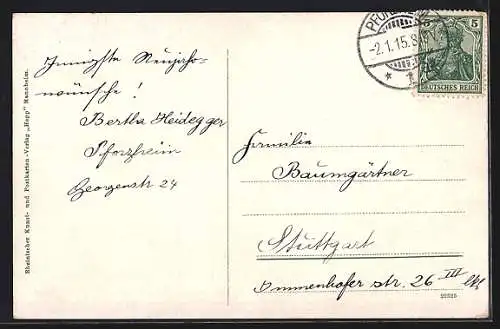 Innigste Neujahrs-
wünsche!
Bertha Heidegger
Pforzheim
Georgenstr 24
Rheinischer Kunst- und Postkarten-Verlag „Hepp" Mannheim.
PFORZHEIM
-2.1.15.8
5 5
DEUTSCHES REICH
Familie
Baumgärtner
Stuttgart
Immenhofer str. 26 III
22325